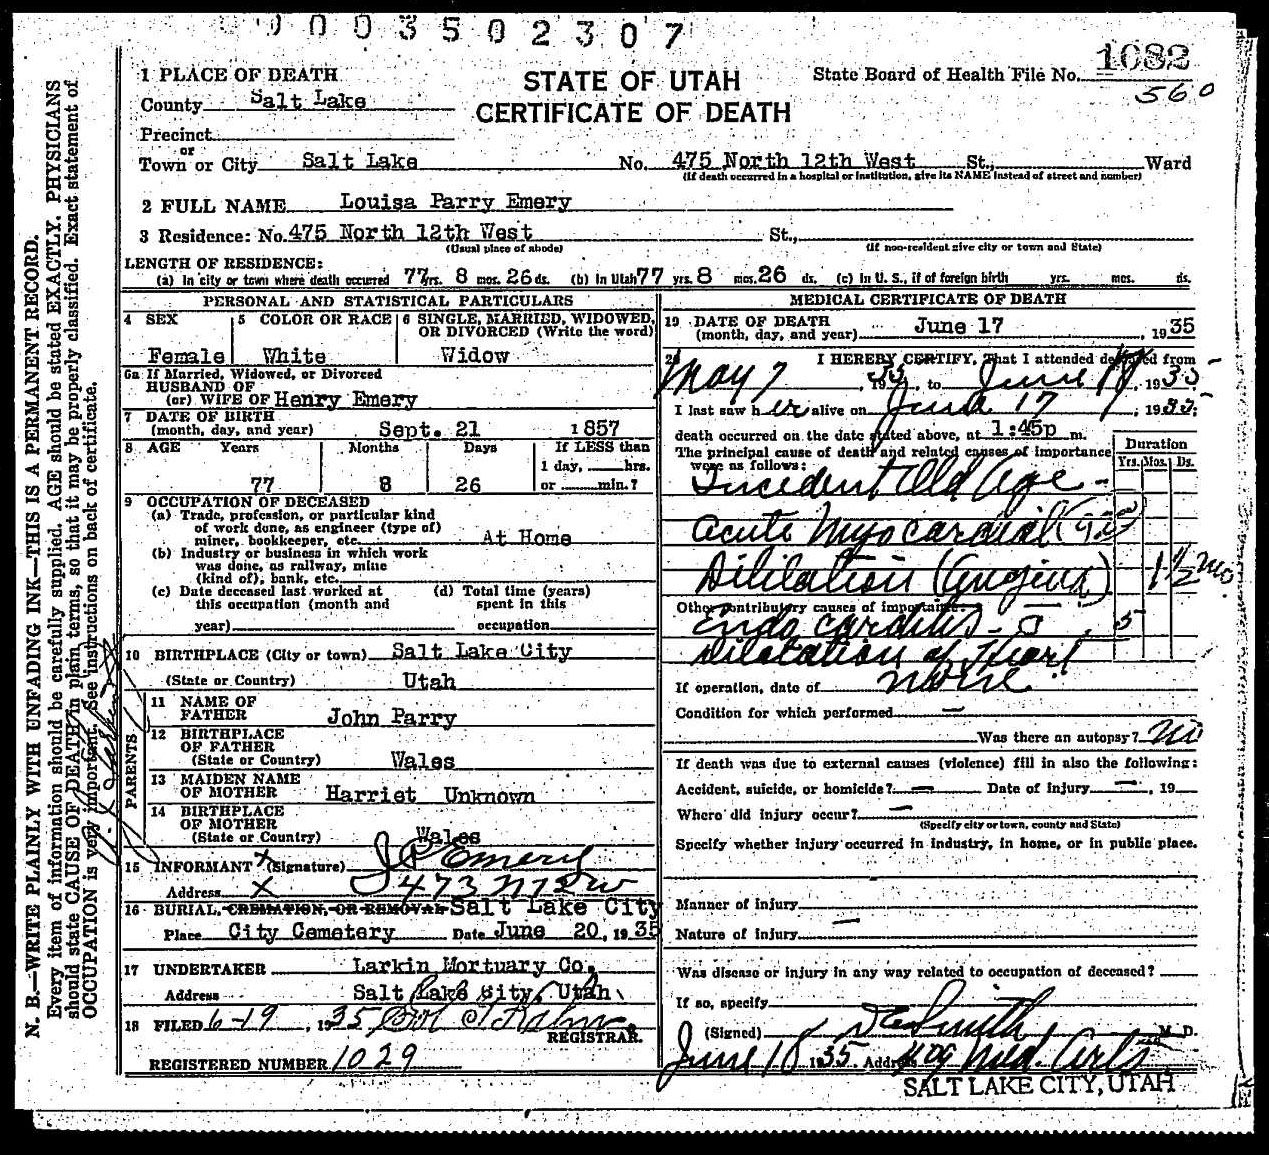 0003502307
1 PLACE OF DEATH
STATE OF UTAH
CERTIFICATE OF DEATH
State Board of Health File No. 1082
560
County Salt Lake
Precinct
or
Town or City Salt Lake No. 475 North 12th West St., Ward
(If death occurred in a hospital or institution, give its NAME instead of street and number)
2 FULL NAME Louisa Parry Emery
3 Residence: No. 475 North 12th West St.,
(Usual place of abode) (If non-resident give city or town and State)
LENGTH OF RESIDENCE:
(a) In city or town where death occurred 77 yrs. 8 mos. 26 ds. (b) In Utah 77 yrs. 8 mos. 26 ds. (c) In U. S., if of foreign birth yrs. mos. ds.
PERSONAL AND STATISTICAL PARTICULARS
4 SEX 5 COLOR OR RACE 6 SINGLE, MARRIED, WIDOWED, OR DIVORCED (Write the word)
Female White Widow
6a If Married, Widowed, or Divorced
HUSBAND OF
(or) WIFE OF Henry Emery
7 DATE OF BIRTH
(month, day, and year) Sept. 21 1857
8 AGE Years Months Days If LESS than
1 day, hrs.
77 8 26 or min.?
9 OCCUPATION OF DECEASED
(a) Trade, profession, or particular kind
of work done, as engineer (type of)
miner, bookkeeper, etc. At Home
(b) Industry or business in which work
was done, as railway, mine
(kind of), bank, etc.
(c) Date deceased last worked at (d) Total time (years)
this occupation (month and spent in this
year) occupation
10 BIRTHPLACE (City or town) Salt Lake City
(State or Country) Utah
PARENTS
11 NAME OF
FATHER John Parry
12 BIRTHPLACE
OF FATHER
(State or Country) Wales
13 MAIDEN NAME
OF MOTHER Harriet Unknown
14 BIRTHPLACE
OF MOTHER
(State or Country) Wales
15 INFORMANT X (Signature) J P Emery
Address X 473 N 12 W
16 BURIAL, CREMATION, OR REMOVAL Salt Lake City
Place City Cemetery Date June 20, 1935
17 UNDERTAKER Larkin Mortuary Co.
Address Salt Lake City, Utah
18 FILED 6-19, 1935
REGISTRAR.
REGISTERED NUMBER 1029
MEDICAL CERTIFICATE OF DEATH
19 DATE OF DEATH
(month, day, and year) June 17 1935
20 I HEREBY CERTIFY, That I attended deceased from
May 7, 1935, to June 17, 1935
I last saw her alive on June 17, 1935;
death occurred on the date stated above, at 1:45p m.
The principal cause of death and related causes of importance
were as follows:
Duration
Yrs. Mos. Ds.
Incident Old Age -
Acute Myocardial
Dililation (Angina) 1 1/2 mo
Other contributory causes of importance:
Endo carditis - 5
Dilatation of Heart
If operation, date of None
Condition for which performed —
Was there an autopsy? No
If death was due to external causes (violence) fill in also the following:
Accident, suicide, or homicide? — Date of injury —, 19
Where did injury occur? —
(Specify city or town, county and State)
Specify whether injury occurred in industry, in home, or in public place.
Manner of injury
Nature of injury —
Was disease or injury in any way related to occupation of deceased?
If so, specify
(Signed) Smith, M. D.
June 18 1935 Address Med. Arts
SALT LAKE CITY, UTAH
N. B.—WRITE PLAINLY WITH UNFADING INK—THIS IS A PERMANENT RECORD.
Every item of information should be carefully supplied. AGE should be stated EXACTLY. PHYSICIANS
should state CAUSE OF DEATH in plain terms, so that it may be properly classified. Exact statement of
OCCUPATION is very important. See instructions on back of certificate.